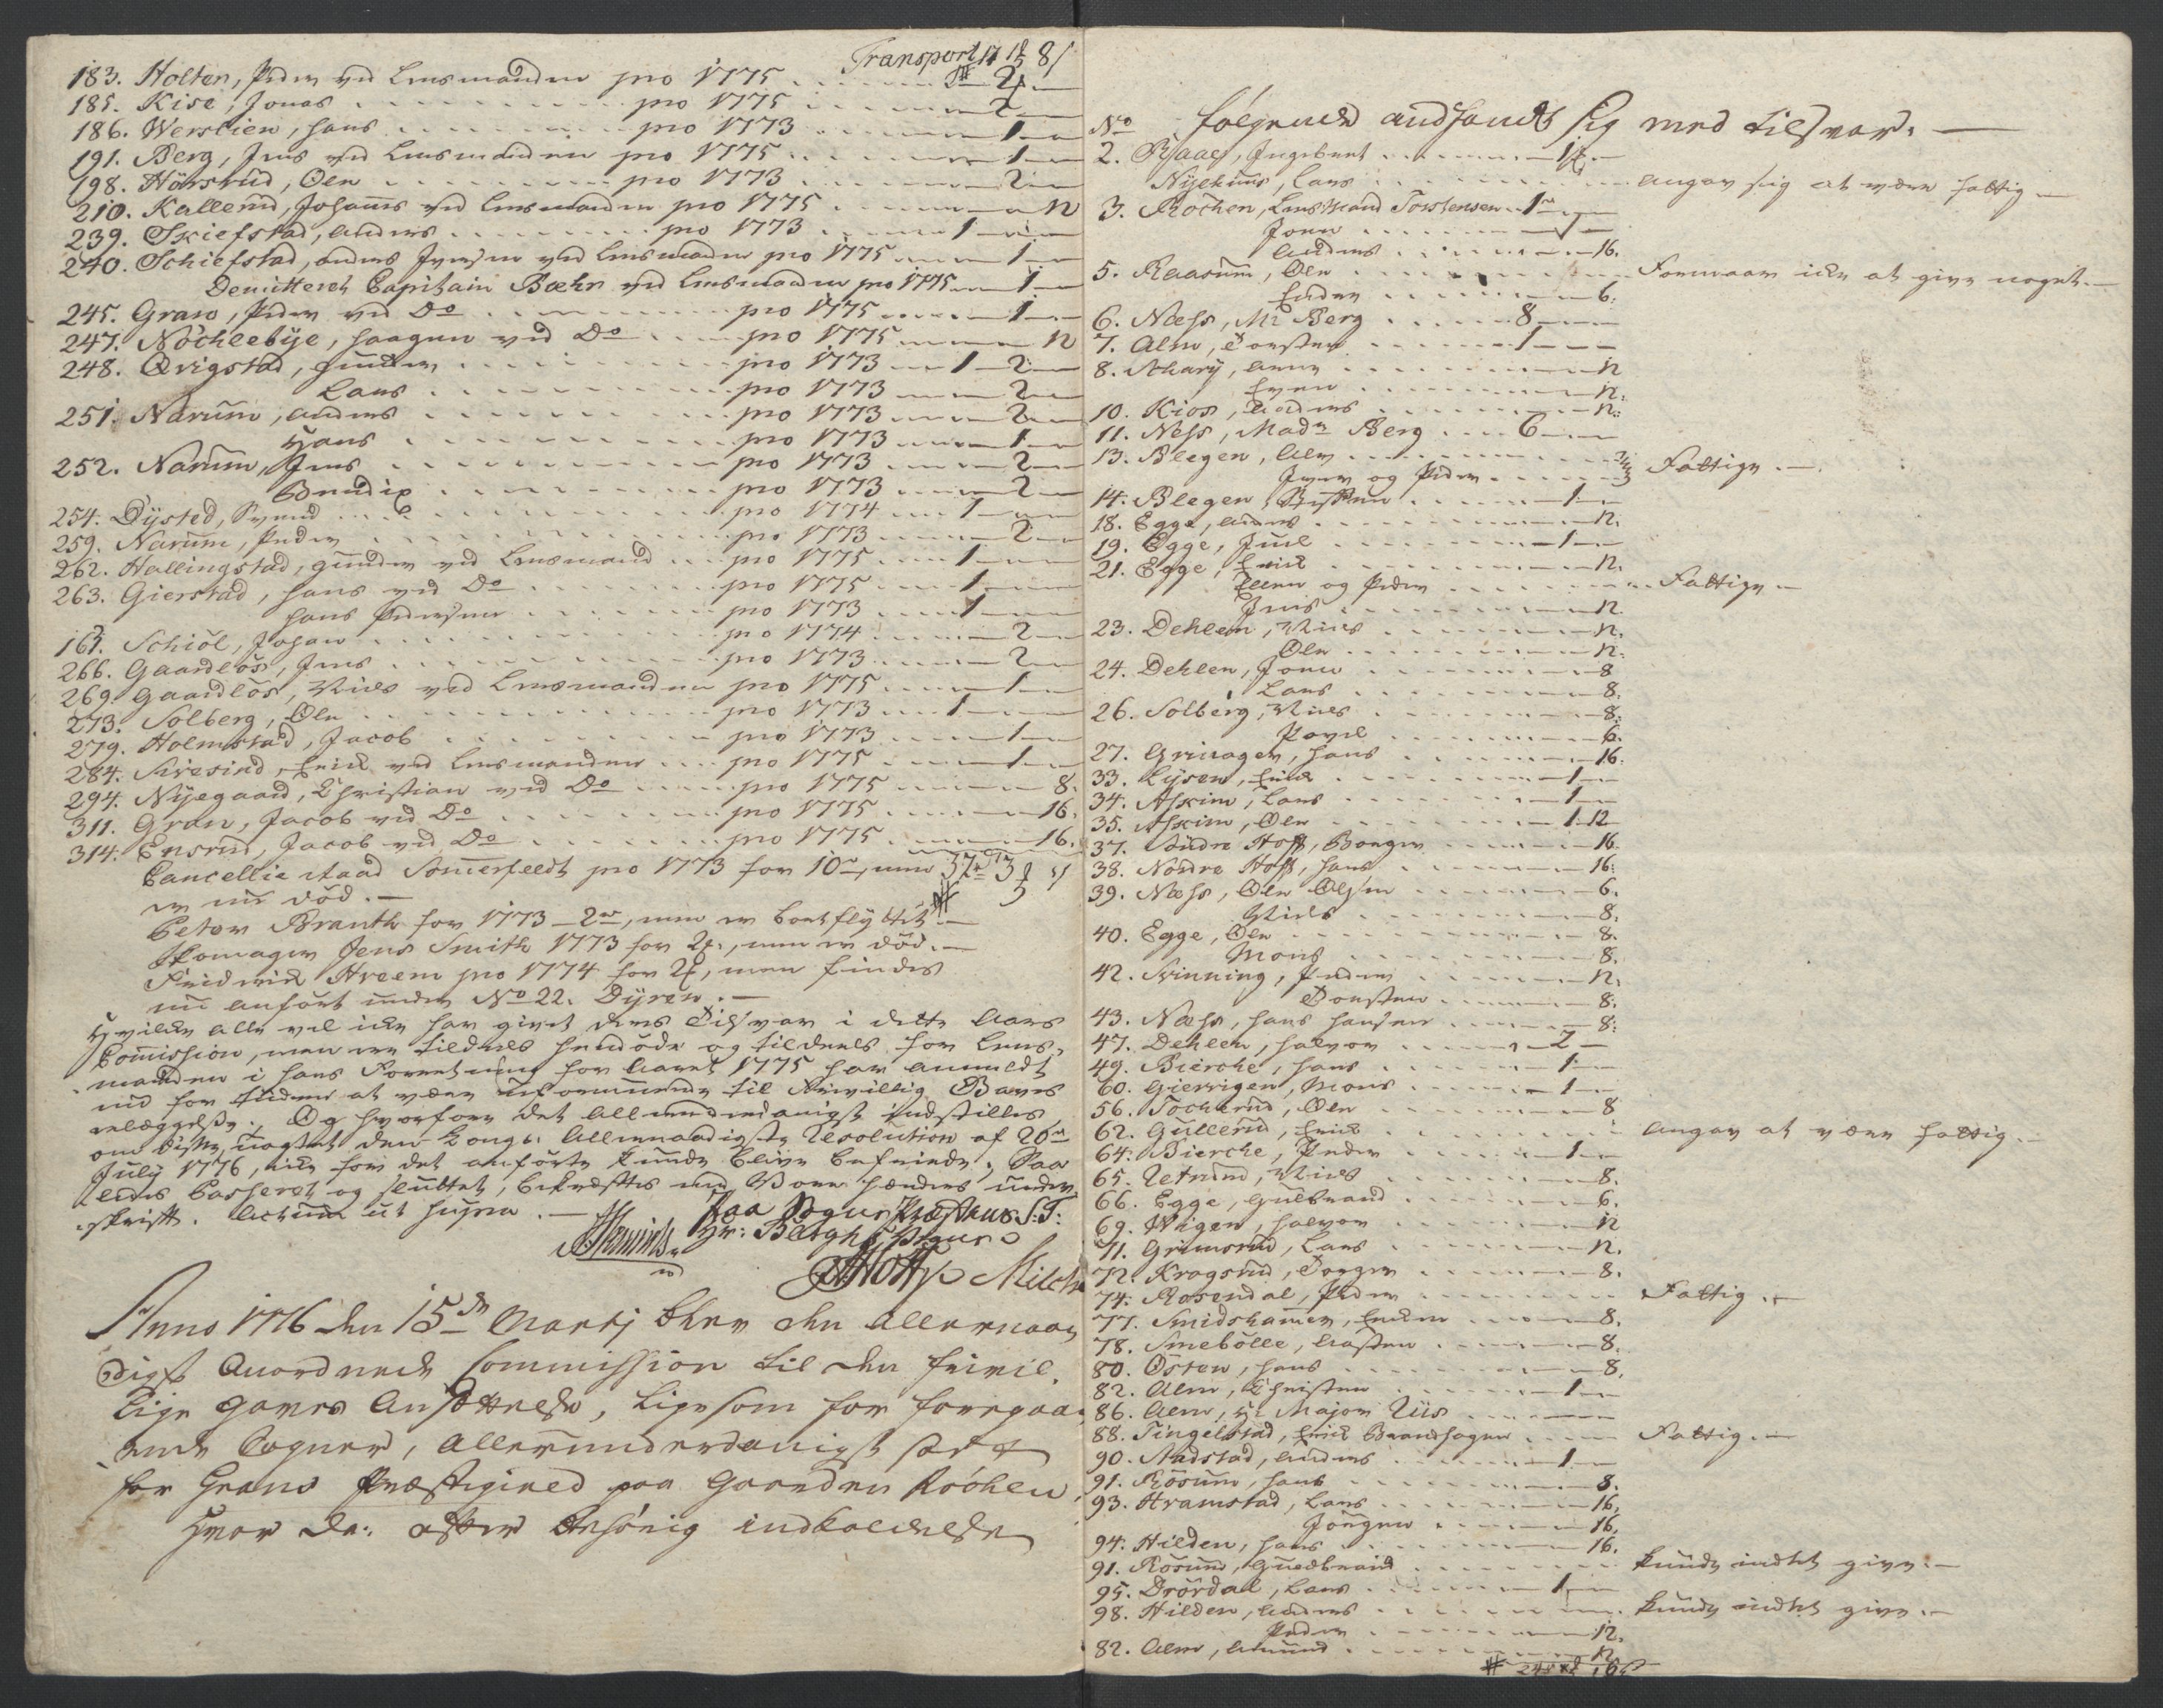 Transport 17 1 8 s
183. Holten, Peder ved Lensmanden pro 1775 2
185. Kise, Jonas pro 1775 2
186. Werstien, Hans pro 1773 1
191. Berg, Jens ved Lensmanden pro 1775 1
198. Hörsrud, Ole pro 1773 2
210. Kallerud, Johans ved Lensmanden pro 1775 12
239. Skiefstad, Anders pro 1773 1
240. Schiefstad, Anders Iversen ved Lensmanden pro 1775 1
Demitteret Capitain Bæhr ved Lensmanden pro 1775 1
245. Gran, Peder ved Do pro 1775 1
247. Nöchlebÿe, Haagen ved Do pro 1775 12
248. Qvigstad, Gunder pro 1773 1 2
Lars pro 1773 2
251. Narum, Anders pro 1773 2
Hans pro 1773 1
252. Narum, Jens pro 1773 2
Bendix pro 1773 2
254. Dÿsted, Svend pro 1774 1
259. Narum, Peder pro 1773 2
262. Hallingstad, Gunder ved Lensmand pro 1775 1
263. Gierstad, Hans ved Do pro 1775 1
Hans Pedersen pro 1773 1
161. Schiöl, Johan pro 1774 2
266. Gaardlös, Jens pro 1773 2
269. Gaardlös, Niels ved Lensmanden pro 1775 1
273. Solberg, Ole pro 1773 1
279. Holmstad, Jacob pro 1773 1
284. Sivesind, Erich ved Lensmanden pro 1775 1
294. Nÿegaard, Christian ved Do pro 1775 8.
311. Gran, Jacob ved Do pro 1775 16.
314. Ensrud, Jacob ved Do pro 1775 16.
Cancellie Raad Somerfeldt pro 1773 for 10 rd, men 37 rd 3
er nu död.
Peter Brandt for 1773 2 rd, men er bortflyttet.
Skomager Jens Smith 1773 for 2, men er död.
Friderich Hveem pro 1774 for 2, men findes
nu anfört under No 22. Dÿren.
Hvilke alle vel icke har givet deres Tilsvar i dette Aars
Commission, men ere tildeels hendöde og tildeels for Lens-
manden i hans Forretning for Aaret 1775 har anmeldt
sig for Tiden at være uformuende til frivillig Gaves
erlæggelse. Og hvorfore det allerunderdanigst indstilles
om disse, uagtet den Kongl. Allernaadigste Resolution af 20de
July 1776, icke for det anförte kunde blive befriede. Saa
ledes Passeret og sluttet, bekræftes med Vore Hænders under
skrift. Actum ut supra.
Paa Sogne Præstens S: T:
Hr: Berghs Vegne
Hoff Milch
Anno 1776 den 15de Martj blev den Allernaa
digst Anordnede Commission til den frivil,
lige Gaves Ansættelse, ligesom for foregaa,
ende Sogner, Allerunderdanigst sat
for Grans Præstegield paa Gaarden Röchen
Hvor da: efter behörig indkaldelse
No Fölgende indfandt sig med tilsvar.
2. Raael, Ingebret 1
Nÿehuus, Lars angav sig at være fattig
3. Röchen, Lensmand Torstensen 1
Joen 1
Anders 16.
5. Raasum, Ole Formaaer icke at give noget.
Peder 6.
6. Næss, Mr Berg 8
7. Alm, Torsten 1
8. Scharÿ, Arne 12
Even 12.
10. Kios, Anders 12.
11. Ness, Madm Berg 6
13. Blegen, Ole Fattige.
Iver og Peder
14. Blegen, Christen 1
18. Egge, Anders 12.
19. Egge, Juul 1
21. Egge, Erich 12.
Ellen og Peder Fattige.
Jens 12
23. Dehlen, Niels 12.
Ole 12.
24. Dehlen, Joen 8
Lars 8.
26. Solberg, Niels 8.
Povel 6.
27. Grinager, Hans 16.
33. Lÿsen, Erich 1
34. Askim, Lars 1
35. Askim, Ole 1.12
37. Söndre Hoff, Borger 16.
38. Nordre Hoff, Hans 16.
39. Næss, Ole Olsen 6.
Niels 8.
40. Egge, Ole 8.
Mons 8.
42. Svinning, Peder 12.
Torsten 8.
43. Næss, Hans Hansen 8.
47. Dehlen, Halvor 2
49. Bierche, Hans 1
60. Gierrigen, Mons 1
56. Tocherud, Ole 8
62. Gullerud, Erich angav at være fattig.
64. Bierche, Peder 1
65. Retrud, Niels 8.
66. Egge, Gulbrand 6.
69. Wigen, Halvor 12
71. Grimsrud, Lars 12.
72. Kragsrud, Torger 8.
74. Rosendal, Peder Fattig.
77. Smidshamer, Erich 8.
78. Smebölle, Carsten 8.
80. Östen, Hans 8.
82. Alm, Christen 1
86. Alm, Hr Major Riis
88. Tingelstad, Erich Brandhagen Fattig.
90. Aadstad, Anders 1
91. Rösum, Hans 8.
93. Hramstad, Lars 16.
Jörgen 16.
94. Hilden, Hans 16.
91. Rösum, Guldbrand kunde indtet give.
95. Drördal, Lars 1
98. Hilden, Anders kunde indtet give.
Peder 12.
82. Alm, Amund 12.
24 rd 16 s